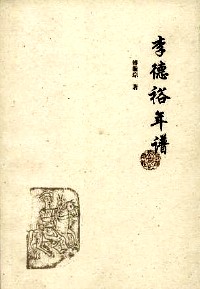 李德裕年谱
傅璇琮 著